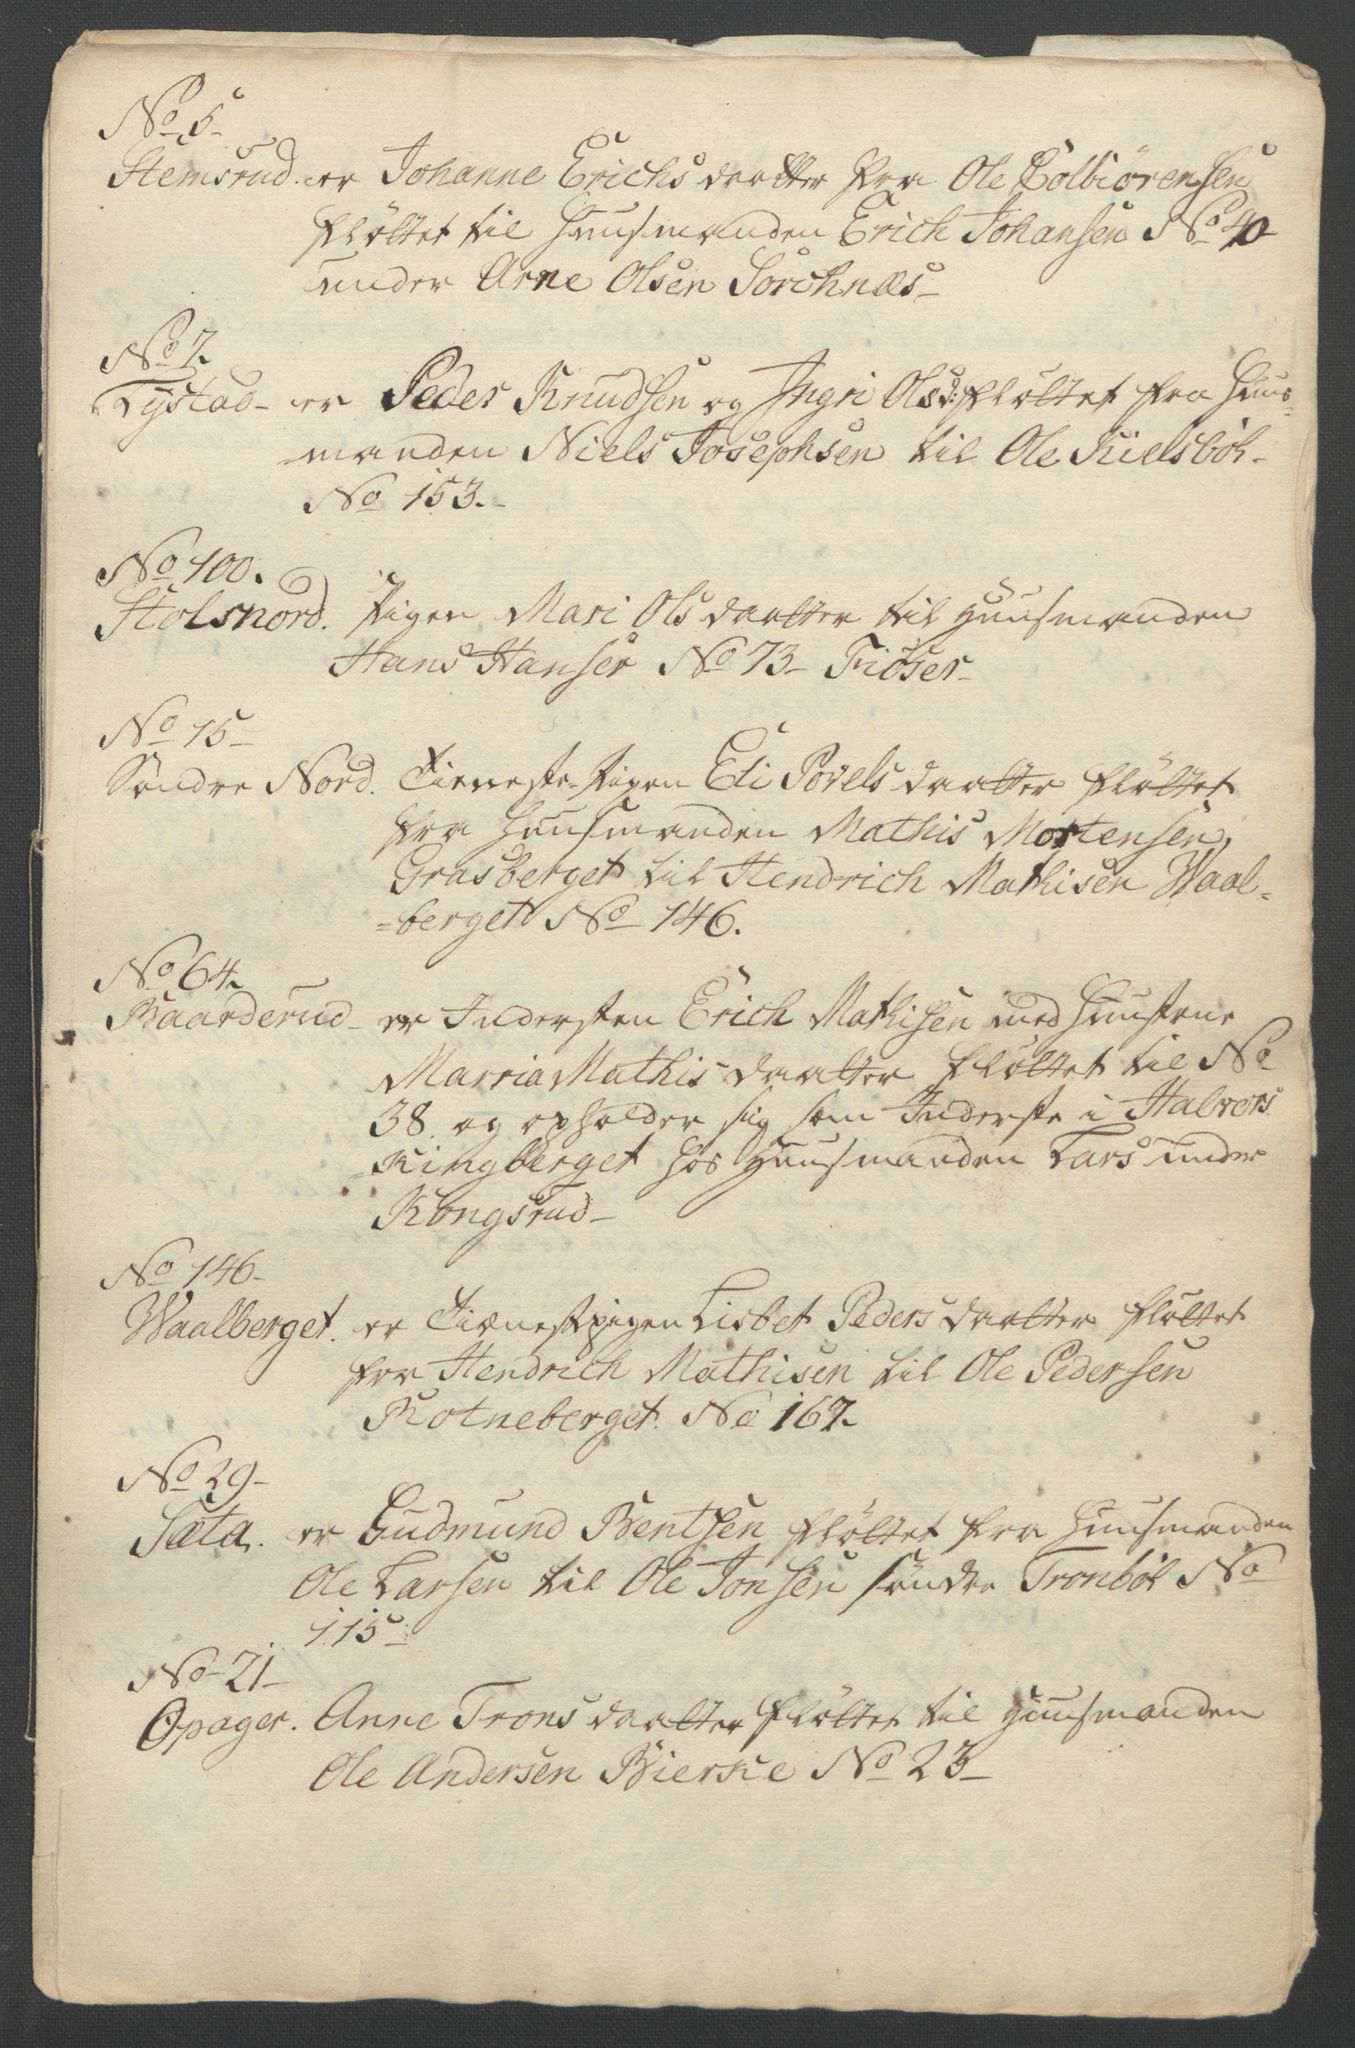 No 5
Stemsrud. er Johanne Erichsdaatter fra Ole Colbiörensen
fløttet til Huusmanden Erich Johansen No 40
under Arne Olsen Sorchnæs
No 7.
Lystad er Peder Knudsen og Ingri Olsd: fløttet fra Huus-
manden Niels Josephsen til Ole Kielsböl
No 153.
No 100.
Stolsnord. Pigen Mari Olsdaatter til Huusmanden
Hans Hansen No 73 Fiöser
No 15
Søndre Nord. Tieneste-Pigen Eli Povelsdaatter fløttet
fra Huusmanden Mathis Mortensen,
Grasberget til Hendrich Mathisen Waal-
=berget No 146.
No 64.
Baarderud er Indersten Erich Mathisen med Hustrue
Marria Mathisdaatter fløttet til No
38. og opholder sig som Inderste i Halvors
Kingberget hos Huusmanden Lars under
Kongsrud
No 146
Waalberget. er Tienestpigen Lisbet Pedersdaatter fløttet
fra Hendrich Mathisen til Ole Pedersen
Rotneberget. No 167.
No 29
Sæta. er Gudmund Bentsen fløttet fra Huusmanden
Ole Larsen til Ole Jonsen søndre Tronböl No
115
No 21
Opager. Anne Tronsdaatter fløttet til Huusmanden
Ole Andersen Bierke No 23